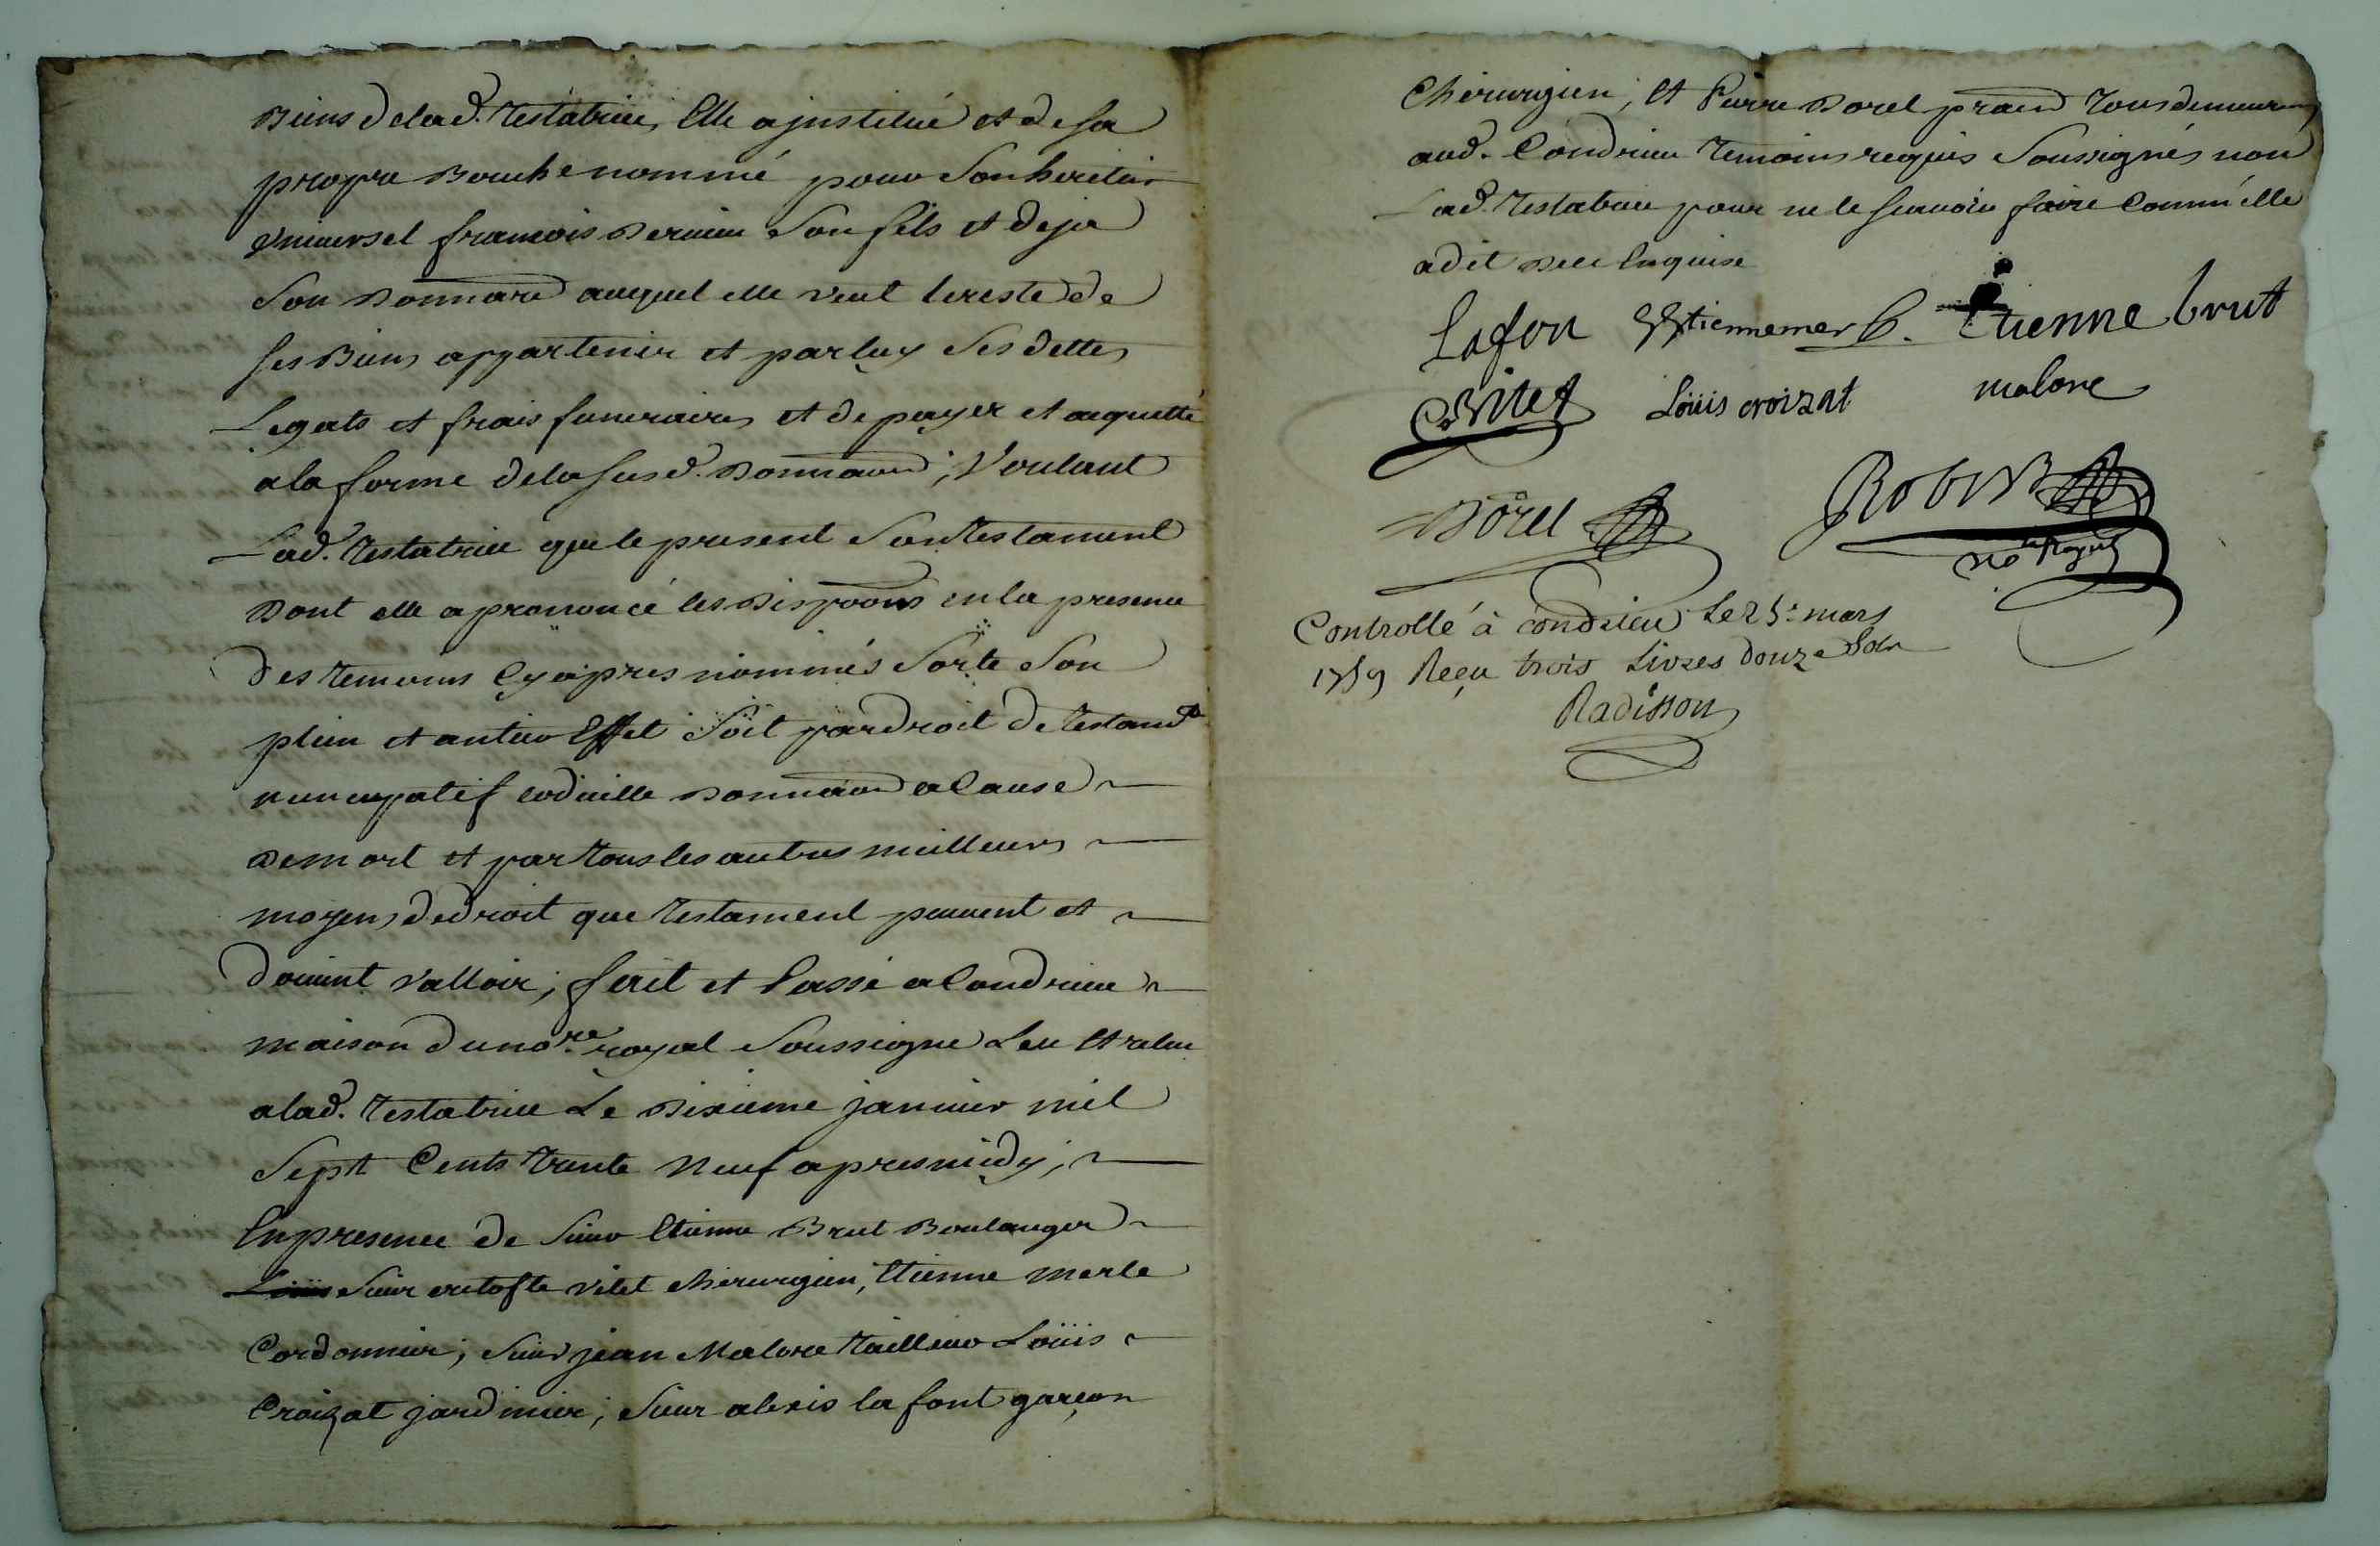 Biens de lad. testatrice, Elle a justitué et de sa
propre Bouche nommé pour son heritier
universel francois Dervieu son fils et deja
son Donnataire auquel elle veut le reste de
ses Biens appartenir et par luy ses dettes
Legats et frais funeraires et de payer et acquitté
a la forme de la susd. Donnaon; Voulant
Lad. testatrice que le present son testament
Dont elle a prononcé les Dispoons en la presence
des temoins Cy apres nommés sorte son
plein et antier Effet soit par droit de testamt
nuncupatif codicille Donnaon a Cause
De mort et par tous les autres meilleurs
moyens de droit que testament peuvent et
doivent valloir; fait et Passé a Condrieu
maison du nore royal soussigné Leu Et relu
a lad. testatrice Le Dixieme janvier mil
sept Cents trente neuf apres midy;
En presence de sieur Etienne Brut Boulanger
sieur vitet chirurgien, Etienne merle
Cordonnier, sieur jean Malore tailleur Loüis
Croizat jardinier, sieur alexis la font garçon
Chirurgien, Et Pierre Dorel tous demeurant
aud. Condrieu temoins requis soussignés non
Lad. testatrice pour ne le sçavoir faire comm'elle
a dit Dece Enquise
Lafon Esttiennemerle. Etienne brut
Vitet Loüis croizat malore
Dorel Robin
nore Royal
Controllé à condrieu le 25e mars
1739 Reçu trois Livres douze sols
Radisson